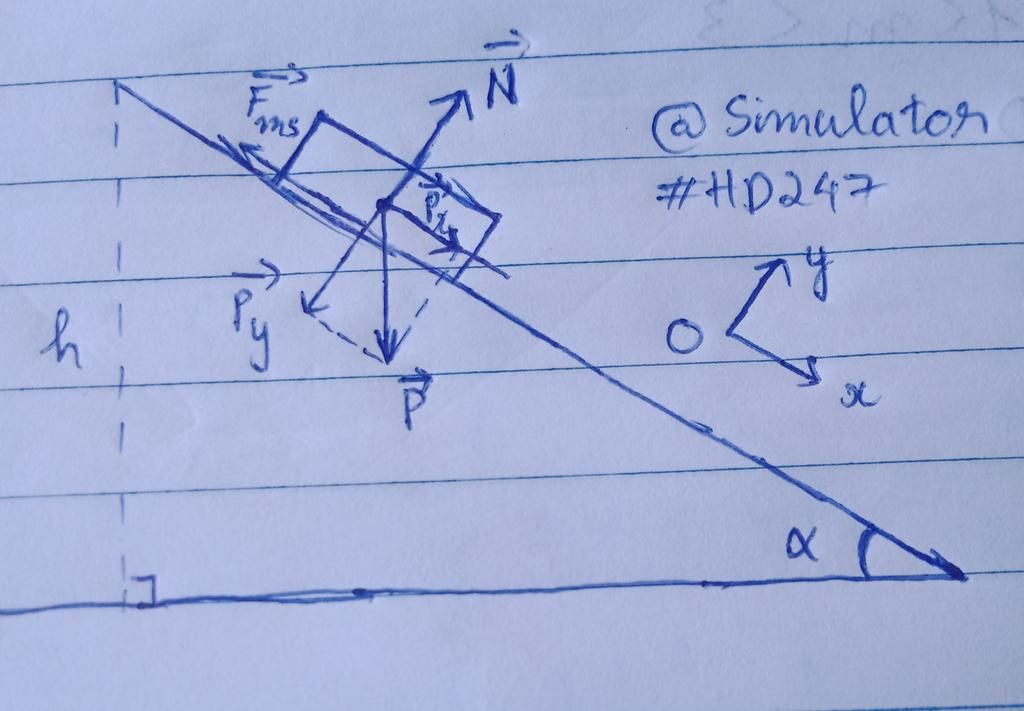 F⃗ms
N⃗
@Simulator
#HD247
P⃗x
P⃗y
P⃗
h
O
y
x
α